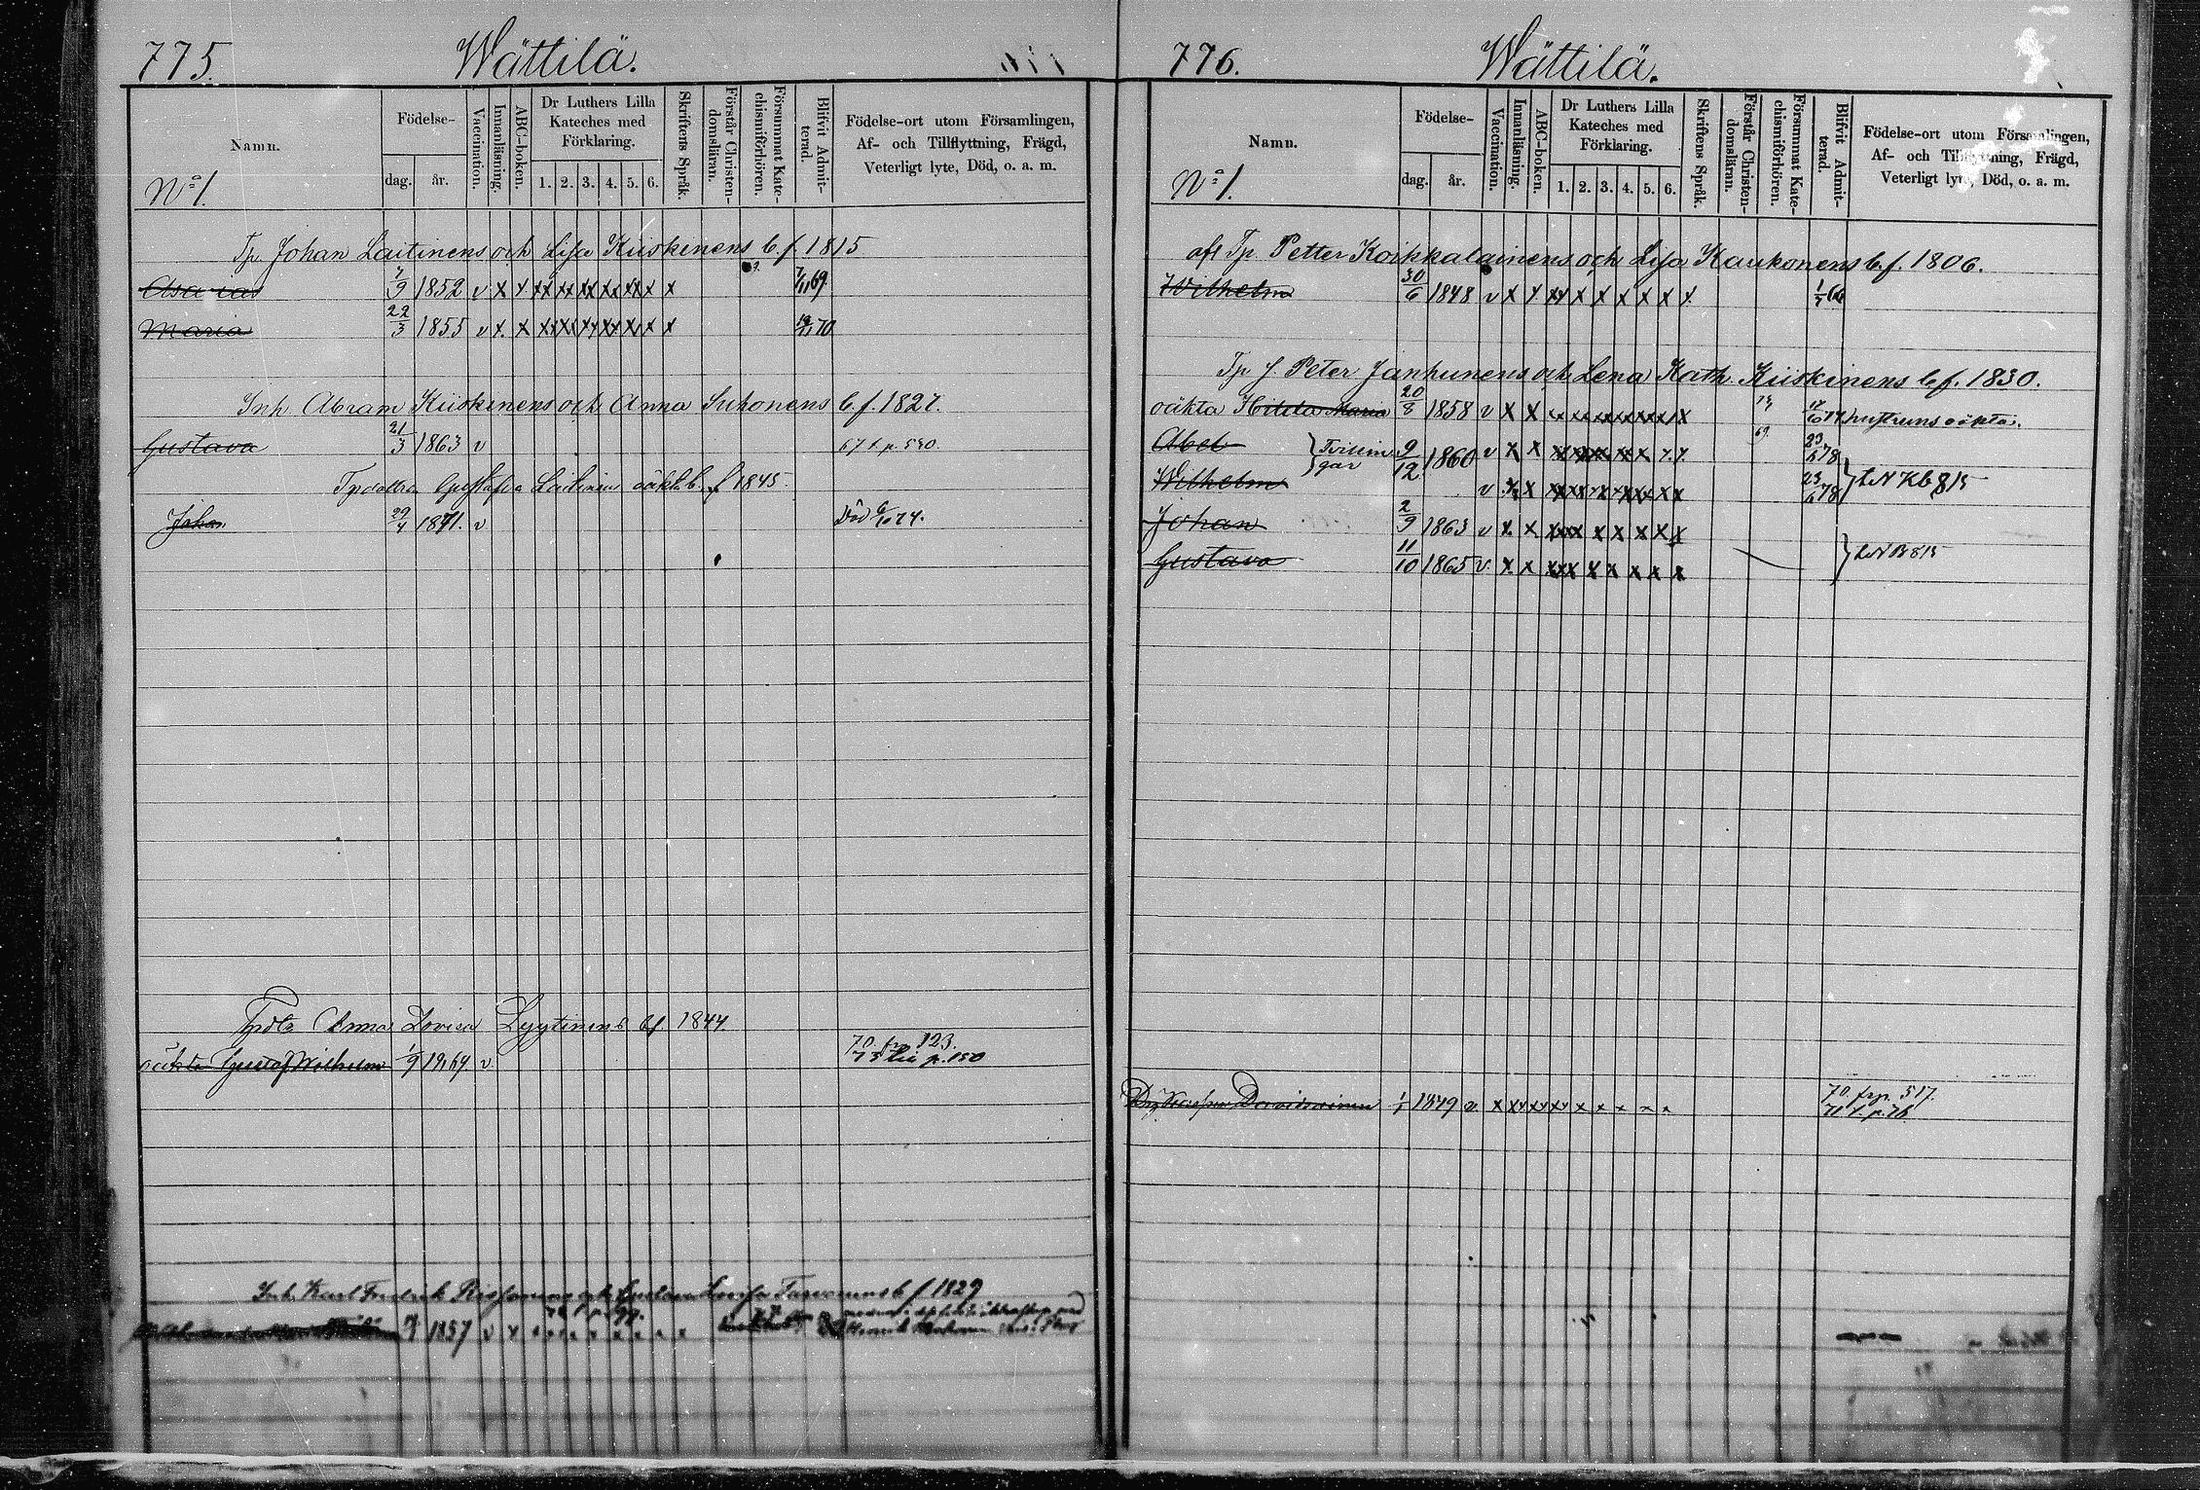 775. Wättilä.
Namn.
Födelse-
dag. år.
Vaccination.
Innanläsning.
ABC-boken.
Dr Luthers Lilla Kateches med Förklaring.
1. 2. 3. 4. 5. 6.
Skriftens Språk.
Förstår Christen-domsläran.
Försummat Kate-chismiförhören.
Blifvit Admit-terad.
Födelse-ort utom Församlingen, Af- och Tillflyttning, Frägd, Veterligt lyte, Död, o. a. m.
No 1.
Tp Johan Laitinens och Lisa Kiiskinens b. f. 1815
7/9 1852 v x x xx xx xx xx xx x x 7/11 69
Maria 22/3 1855 v x x xx xx xx xx xx x x 70
Inh. Abram Kiiskinens och Anna Suhonens b. f. 1827.
Gustava 21/3 1863 v 67 t. p. 530.
Gustafva Laitinen b. f 1845
Johan 29/4 1871. v Död 74.
Anna Lovisa Lyytinens bf 1844
oäkta Gustaf Wilhelm 1/9 1869 v 70. fr. 123.
75 till p. 150
Inh. Karl Fredrik och Gustava Lovisa b f 1829
1857 v x x x x x x x x x
776. Wättilä.
Namn.
Födelse-
dag. år.
Vaccination.
Innanläsning.
ABC-boken.
Dr Luthers Lilla Kateches med Förklaring.
1. 2. 3. 4. 5. 6.
Skriftens Språk.
Förstår Christen-domsläran.
Försummat Kate-chismiförhören.
Blifvit Admit-terad.
Födelse-ort utom Församlingen, Af- och Tillflyttning, Frägd, Veterligt lyte, Död, o. a. m.
No 1.
afl Tp. Petter Koikkalainens och Lisa Kaukonens b. f. 1806.
Wilhelm 30/6 1848 v x x xx x x x x x x
Tp J. Peter Janhunens och Lena Kath. Kiiskinens b. f. 1830.
oäkta Hilda Maria 20/8 1858 v x x x x x x x x x x hustruns oäkta.
Abel } Tvillin 9/12 1860 v x x xx xx xx x x x x 23/6 78
Wilhelm } gar v x x xx xx x x xx x x 23/6 78 } t. N Kb 815
Johan 2/9 1863 v x. x xxx x x x x x
Gustava 11/10 1865 v. x. x xxx x x x x x } t. N 815
1849 v x xx xx xx x x x x x 70. frp. 517.
71 t. p. 76.